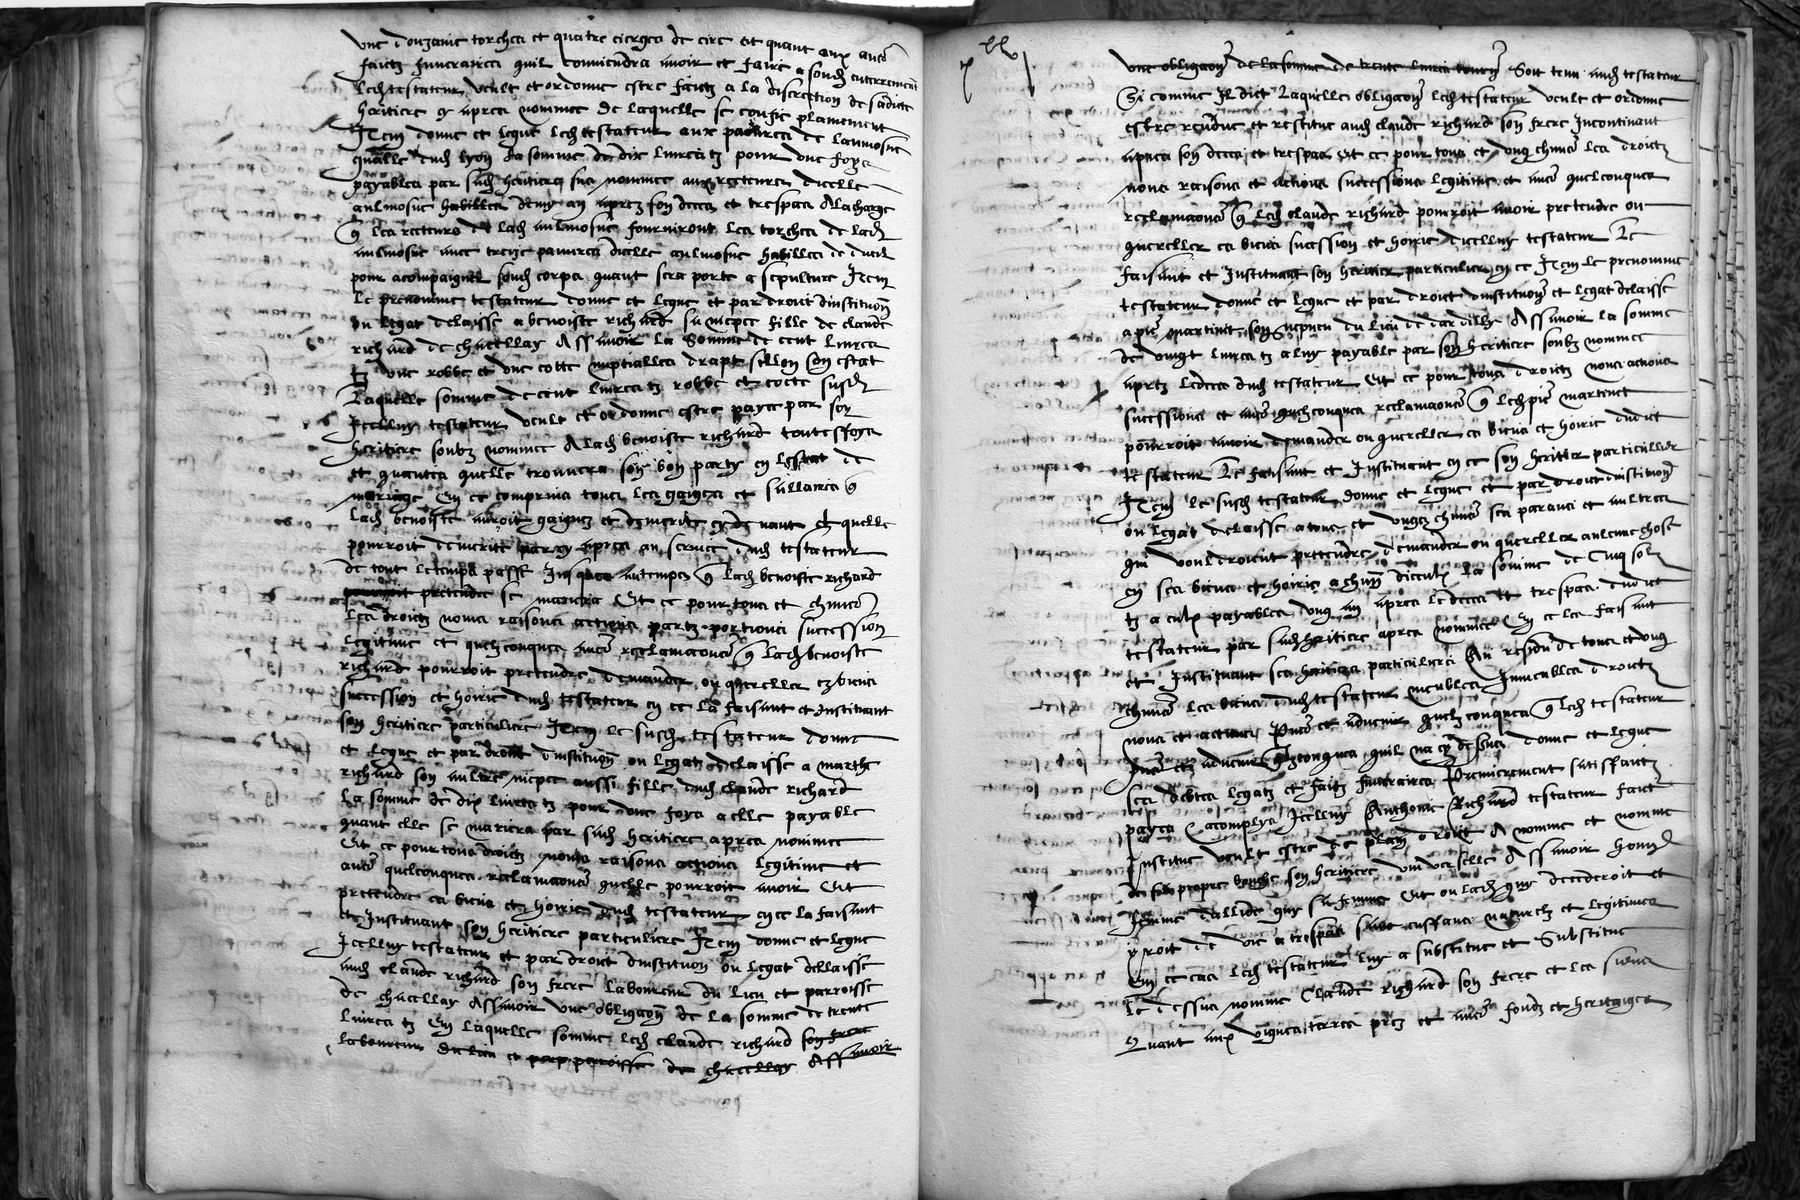 une douzanie torches et quatre cierges de cire Et quant aux aues
faictz funeraires quil conviendra avoir et faire a sond enterrement
led testateur veult et ordonne estre faictz a la discretion de sadicte
heritiere cy apres nommee de laquelle se confie plainement
Item donne et legue led testateur aux pauvres de laumosne
dud lyon la somme de dix livres tz pour une foys
payables par sad heritiere nommee aux recteurs dicelle
aulmosne ung an apres son deces et trespas A la charge
q les recteurs de lad aulmosne fourniront les torches de lad
aulmosne avec treize pauvres dicelle aulmosne habilles de dueil
pour acompaigner sond corps quant sera porte a sepulture Item
le prenomme testateur donne et legue et par droict dinstituon
ou legat delaisse a benoiste richard sa niepce fille de claude
richard de chacellay Assavoir la somme de cent livres
tz une robbe et une cotte nuptialles drapt sellon son estat
Laquelle somme de cent livres tz robbe et cotte susd
Icelluy testateur veult et ordonne estre payee par son
heritiere soubz nommee A lad benoiste richard toutesfoys
et quantes quelle trouvera son bon party en lestat de
mariage En ce comprins tous les gaiges et sallaires q
lad benoiste auroit gaigne et demerite cy devant et quelle
pourroit demerite par cy apres au service dud testateur
de tout le temps passe Jusques au temps q lad benoiste richard
pourroit pretendre se mariera Et ce pour tous et chacuns
les droictz noms raisons actions partz portions succession
legitime et quelconques aues reclamaons q lad benoiste
richard pourroit pretendre demander ou quereller es biens
succession et hoirie dud testateur en ce la faisant et instituant
son heritiere particuliere Item le susd testateur donne
et legue et par droict dinstituon ou legat delaisse a marthe
richard son aultre niepce aussi fille dud claude richard
La somme de dix livres tz pour une foys a elle payable
quant elle se mariera par sad heritiere apres nommee
Et ce pour tous droictz noms raisons actions legitime et
aues quelconques reclamaons quelle pourroit avoir Et
pretendre es biens et hoirie dud testateur en ce la faisant
et Instituant son heritiere particuliere Item donne et legue
Icelluy testateur et par droict dinstituon ou legat dellaisse
aud claude richard son frere laboureur du lieu et parroisse
de chacellay Assavoir une obligaon de la somme de trente
livres tz En laquelle somme led claude richard son frere
laboureur du lieu et parroisse de chacellay Assavoir
une obligaon de la somme de trente livres tourn Soit tenu aud testateur
Si comme Il dict Laquelle obligaon led testateur veult et ordonne
estre rendue et restitue aud claude richard son frere Incontinant
apres son deces et trespas Et ce pour tous et ung chacuns les droictz
noms raisons et actions successions legitime et aues quelconques
reclamaons q led claude richard pourroit avoir pretendre ou
quereller es biens succession et hoirie dicelluy testateur Le
faisant et Instituant son heritier particulier en ce Item le prenomme
testateur donne et legue et par droict dinstituon et legat delaisse
a pie martinet son nepveu du lieu de dardilly Assavoir la somme
de vingt livres tz a luy payable par son heritiere soubz nommee
apres le deces dud testateur Et ce pour tous droictz noms actions
successions et aues quelconques reclamaons q led pie martinet
pourroit avoir demander ou quereller es biens et hoirie dudict
testateur Le faisant et Instituant en ce son heritier particulier
Item le susd testateur donne et legue et par droict dinstituon
ou legat delaisse a tous et ungz chacuns ses parans et aultres
qui vouldroient pretendre demander ou quereller aulcune chose
en ses biens et hoirie a chun diceulx la somme de cinq solz
tz a eulx payables ung an apres le deces et trespas dudict
testateur par sad heritiere apres nommee En ce les faisant
et Instituant ses heritiers particuliers Au residu de tous et ung
chacuns les biens dud testateur meubles Immeubles droictz
noms et actions pns et advenir quelconques q led testateur
pns et advenir quelconques quil na cy dessus donne et legue
ses debtes legatz et faictz funeraires Premierement satisfaictz
payes et acomplys Icelluy Anthoine Richard testateur faict
Institue veult estre de plain droict A nomme et nomme
de sa propre bouche son heritiere universelle Assavoir
femme sa femme Et ou lad decederoit et
yroit de vie a trespas sans enffans naturelz et legitimes
En ce cas led testateur luy a substitue et Substitue
le dessus nomme Claude Richard son frere et les siens
Quant aux vignes terres prez et aues fondz et heritaiges